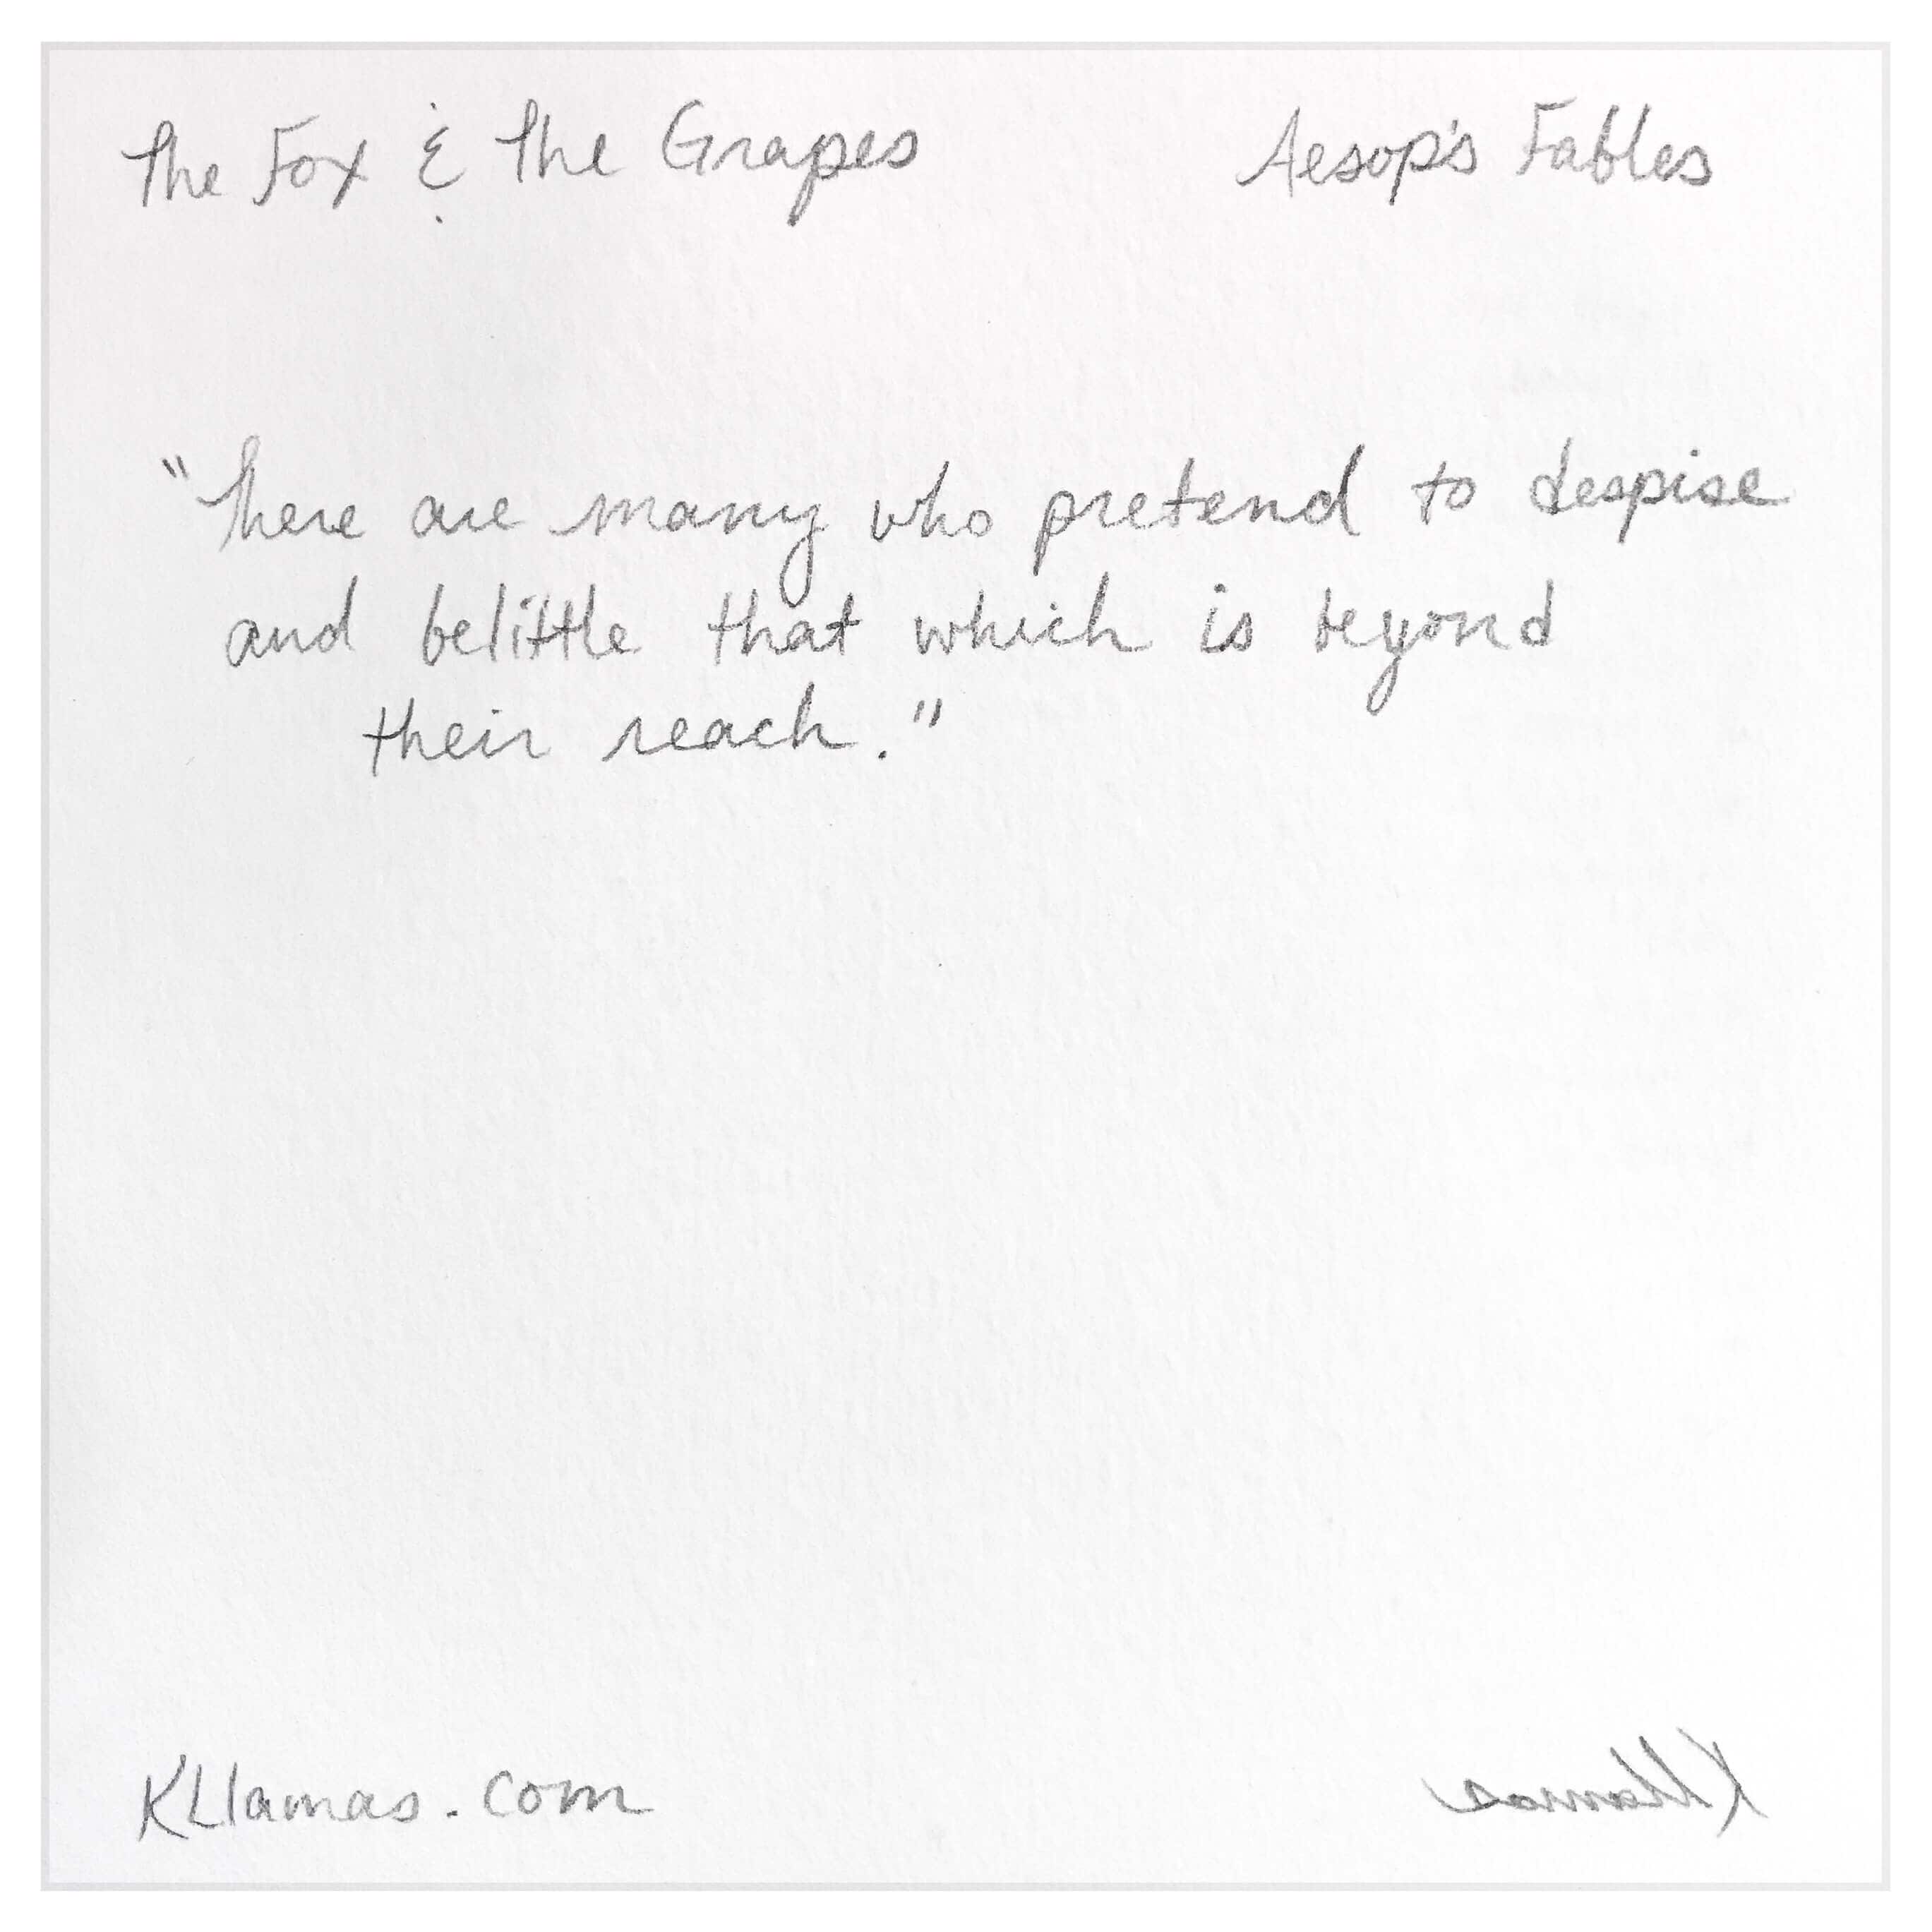 The Fox & The Grapes
Aesop's Fables
"There are many who pretend to despise
and belittle that which is beyond
their reach."
KLlamas.com
KLlamas